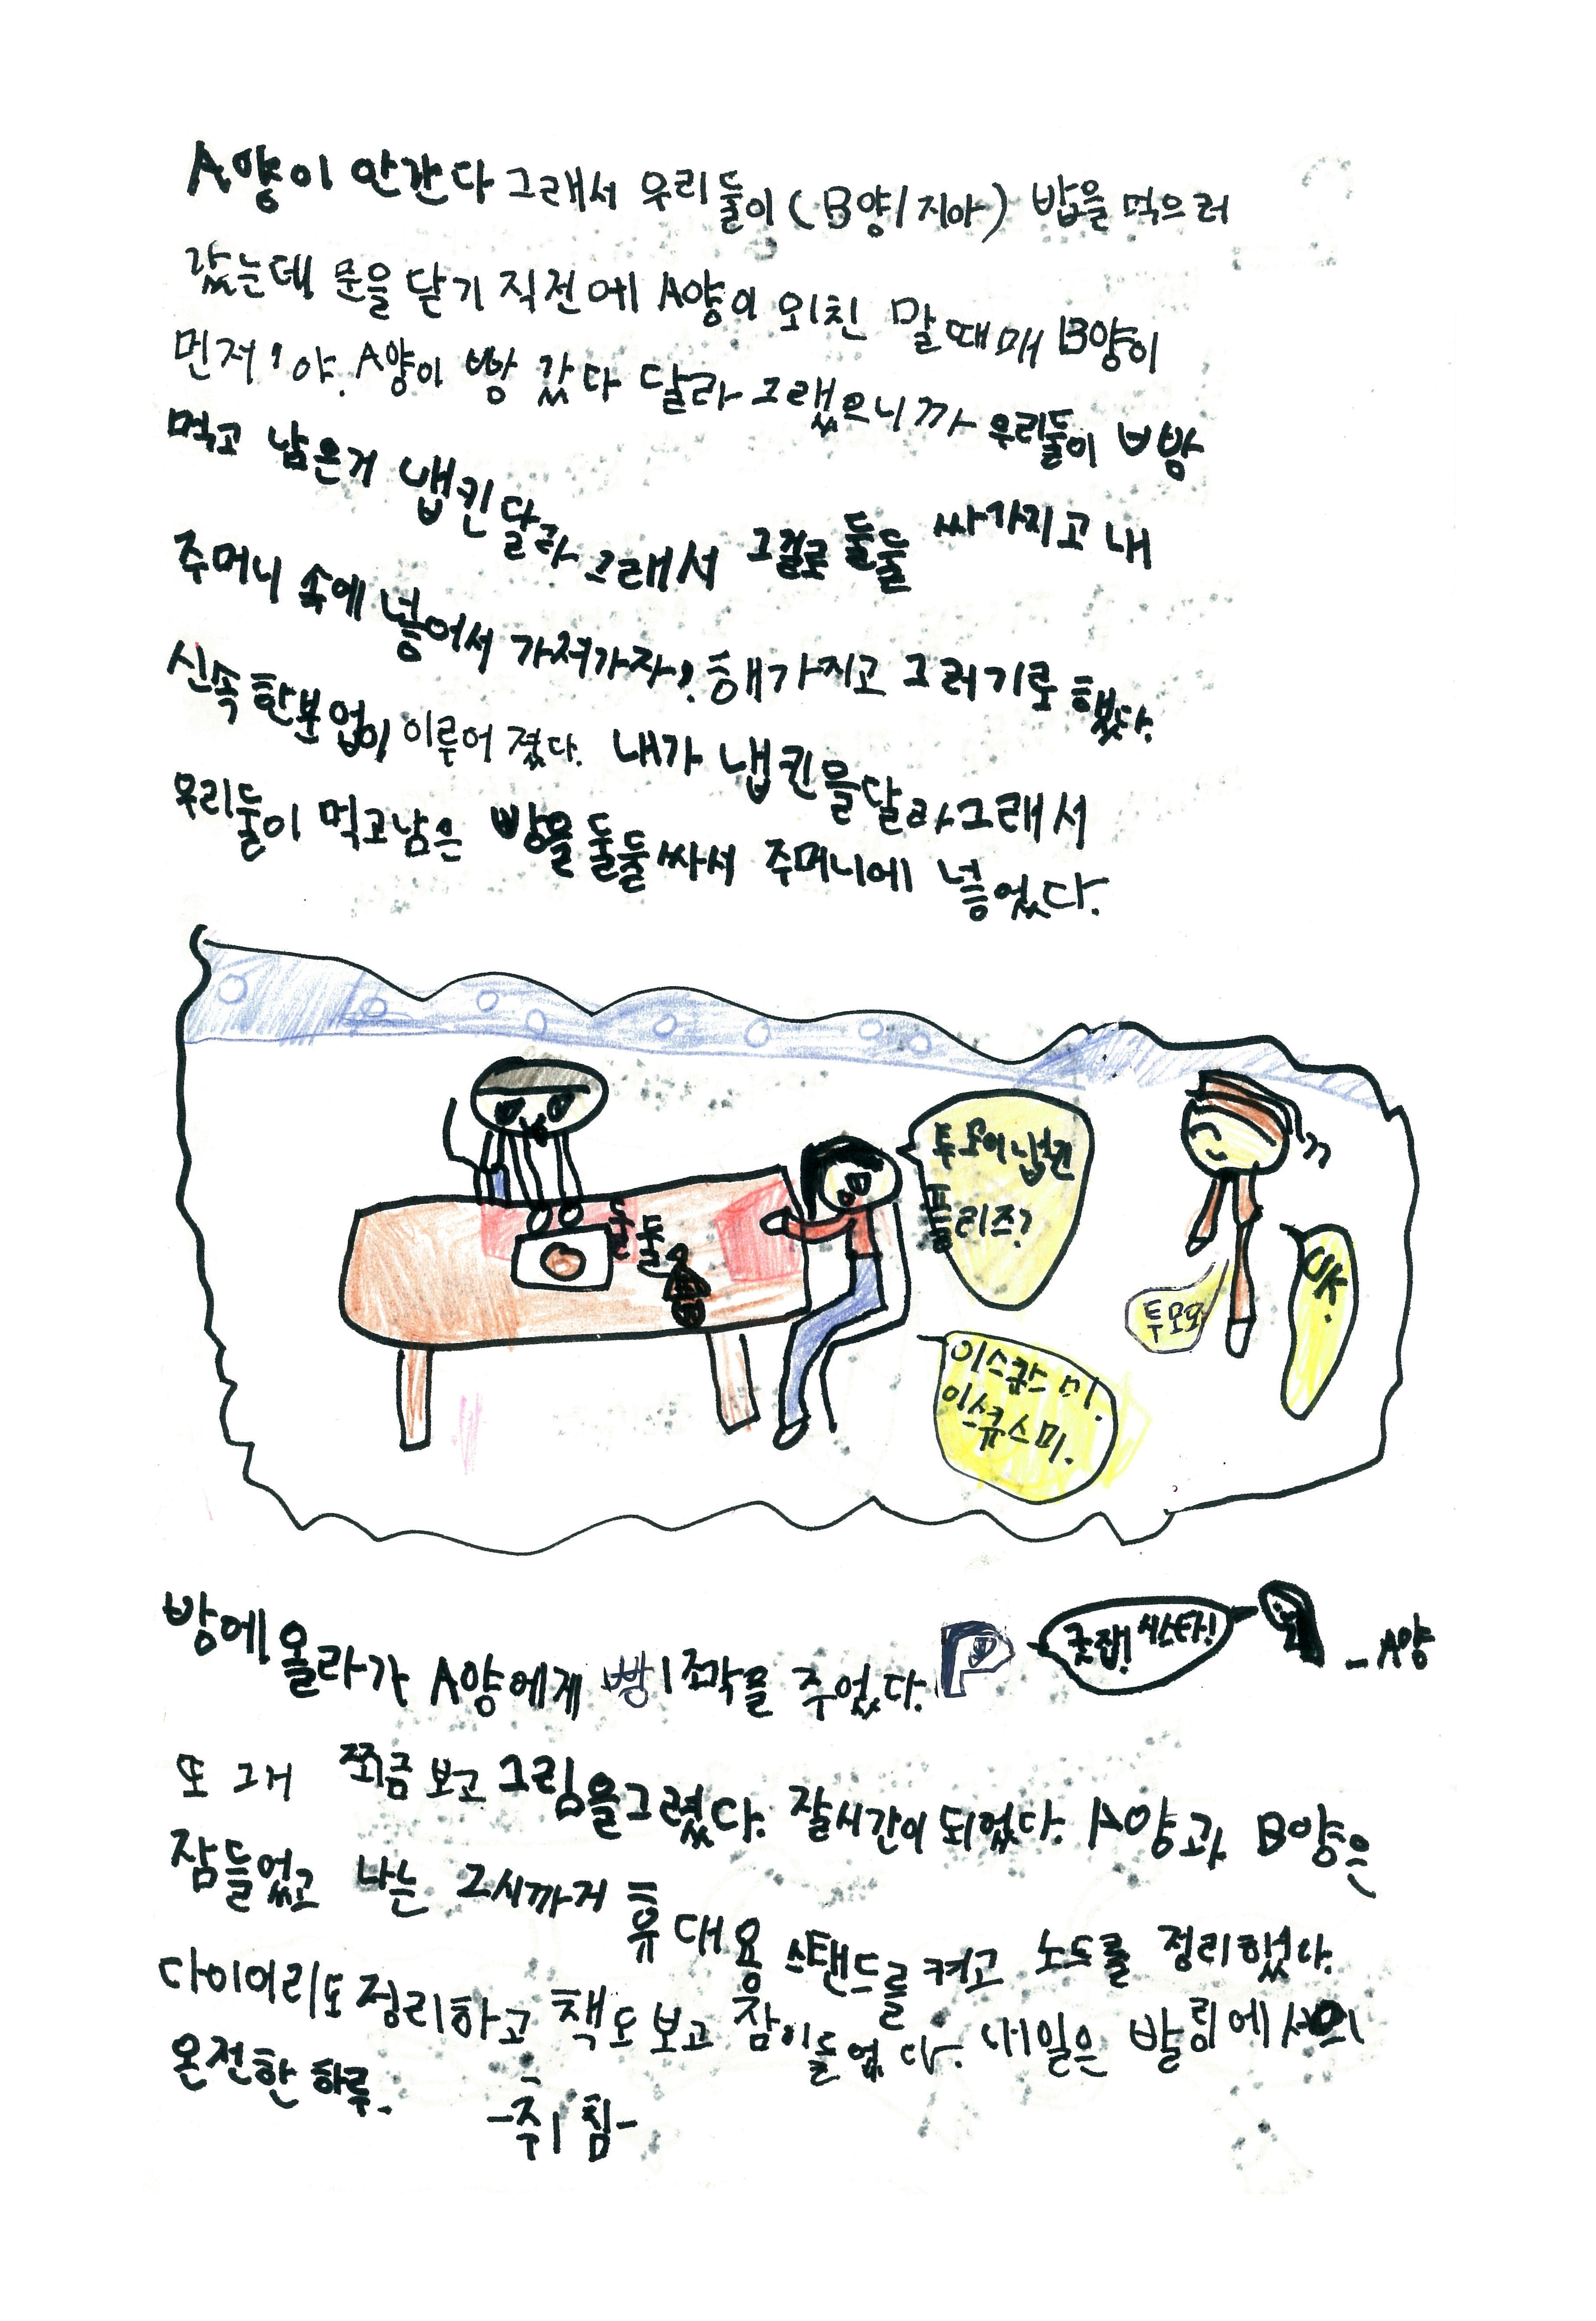 A양이 안간다 그래서 우리둘이 (B양/지아) 밥을 먹으러
갔는데 문을 닫기 직전에 A양이 외친 말 때매 B양이
먼저 '야. A양이 빵 갔다 달라 그랬으니까 우리둘이 빵
먹고 남은거 냅킨달라 그래서 그걸로 둘둘 싸가지고 내
주머니 속에 넣어서 가져가자'. 해가지고 그러기로 했다.
신속한분업이 이루어 졌다. 내가 냅킨을달라그래서
우리둘이 먹고남은 빵을 둘둘싸서 주머니에 넣었다.
투모어냅킨
플리즈?
둘둘
투모어
OK.
이스큐스 미.
이스큐스미.
방에 올라가 A양에게 빵1조각을 주었다.
굿잡! 씨스타!
- A양
또 그거 쬐금 보고 그림을그렸다. 잘시간이 되었다. A양과 B양은
잠들었고 나는 2시까지 휴대용 스탠드를 켜고 노트를 정리했다.
다이어리도 정리하고 책도 보고 잠이들었다. 내일은 발링에서의
온전한 하루.
-취침-